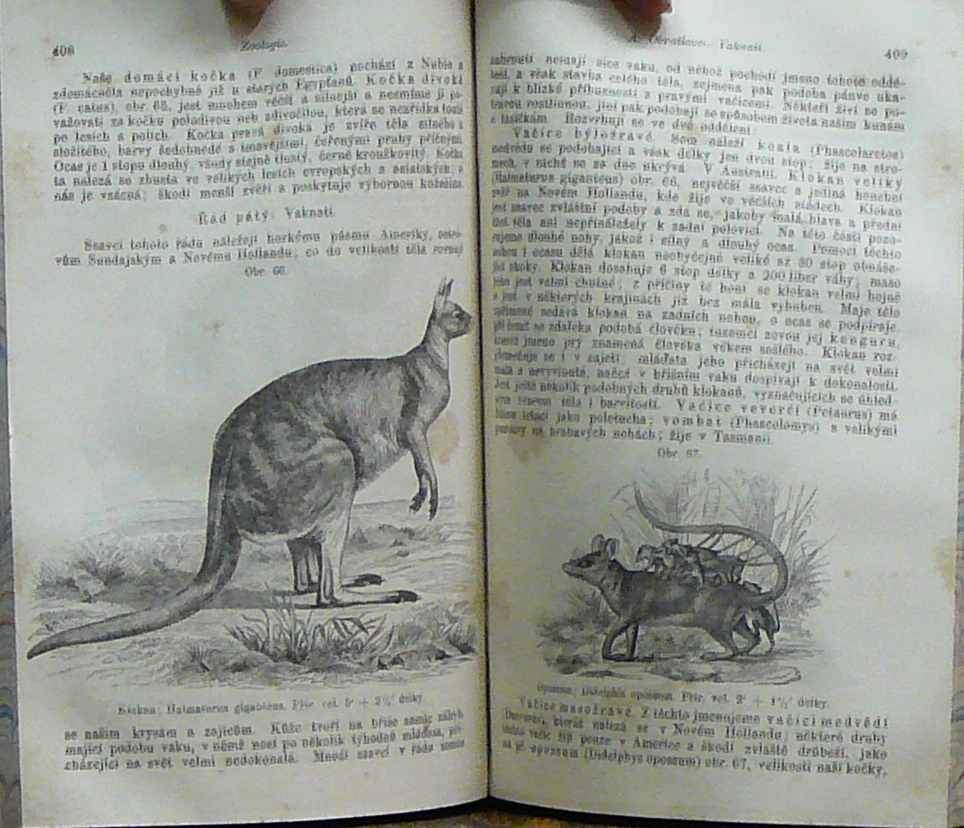 408 Zoologie.
Naše domácí kočka (F. domestica) pochází z Nubie a
zdomácněla nepochybně již u starých Egypťanů. Kočka divoká
(F. catus), obr. 65, jest mnohem větší a silnější a nesmíme ji po-
važovati za kočku polodivou neb zdivočilou, která se nezřídka toulá
po lesích a polích. Kočka pravá divoká je zvíře těla silného a
složitého, barvy šedohnědé s tmavějšími, čeřenými pruhy příčnými.
Ocas je 1 stopu dlouhý, všudy stejně tlustý, černě kroužkovitý. Kočka
ta nalezá se zhusta ve velikých lesích evropských a asiatských, u
nás je vzácná; škodí menší zvěři a poskytuje výbornou kožešinu.
Řád pátý: Vaknatí.
Ssavci tohoto řádu náležejí horkému pásmu Ameriky, ostro-
vům Sundajským a Novému Hollandu; co do velikosti těla rovnají
Obr. 66.
Klokan; Halmaturus giganteus. Přir. vel. 5' + 2½' délky.
se našim krysám a zajícům. Kůže tvoří na břiše samic záhyb
mající podobu vaku, v němž nosí po několik týhodnů mláďata, při-
cházející na svět velmi nedokonalá. Mnozí ssavci v řádu tomto
A. Obratlovci. Vaknatí. 409
zahrnutí nemají sice vaku, od něhož pochodí jmeno tohoto oddě-
lení, a však stavba celého těla, zejmena pak podoba pánve uka-
zují k blízké příbuznosti s pravými vačicemi. Někteří živí se po-
travou rostlinnou, jiní pak podobají se způsobem života našim kunám
a lasičkám. Rozvrhují se ve dvě oddělení.
Vačice býložravé. Sem náleží koala (Phascolarctos)
medvědu se podobající a však délky jen dvou stop; žije na stro-
mech, v nichž se za dne ukrývá. V Australii. Klokan veliký
(Halmaturus giganteus) obr. 66, největší ssavec a jediná honební
zvěř na Novém Hollandu, kde žije ve větších stádech. Klokan
jest ssavec zvláštní podoby a zdá se, jakoby malá hlava a přední
část těla ani nepřináležely k zadní polovici. Na této části pozo-
rujeme dlouhé nohy, jakož i silný a dlouhý ocas. Pomocí těchto
nohou i ocasu dělá klokan neobyčejně veliké až 30 stop obnáše-
jící skoky. Klokan dosahuje 6 stop délky a 200 liber váhy; maso
jeho jest velmi chutné; z příčiny té honí se klokan velmi hojně
a jest v některých krajinách již bez mála vyhuben. Maje tělo
vzpřímené sedává klokan na zadních nohou, o ocas se podpíraje,
při čemž se zdaleka podobá člověku; tuzemci zovou jej kenguru,
kteréž jmeno prý znamená člověka věkem sešlého. Klokan roz-
plemeňuje se i v zajetí; mláďata jeho přicházejí na svět velmi
malá a nevyvinutá, načež v břišním vaku dospívají k dokonalosti.
Jest ještě několik podobných druhů klokanů, vyznačujících se úhled-
ným tvarem těla i barvitostí. Vačice veverčí (Petaurus) má
blánu létací jako poletucha; vombat (Phascolomys) s velikými
pazoury na hrabavých nohách; žije v Tasmanii.
Obr. 67.
Oposum; Didelphis opossum. Přir. vel. 2' + 1½' délky.
Vačice masožravé. Z těchto jmenujeme vačici medvědí
(Dasyurus), kteráž nalezá se v Novém Hollandu; některé druhy
žijí pouze v Americe a škodí zvláště drůbeži, jako
na př. oposum (Didelphys opossum) obr. 67, velikosti naší kočky,